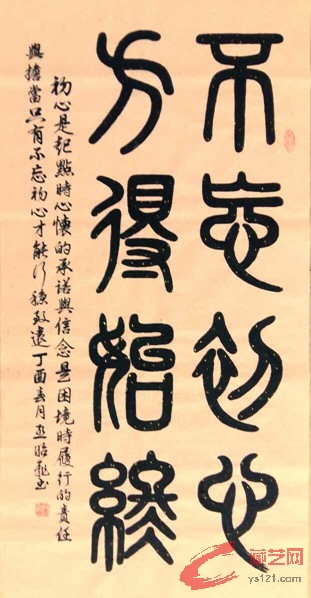 不忘初心
方得始終
初心是起點時心懷的承諾與信念是困境時履行的責任
與擔當只有不忘初心才能行穩致遠丁酉春月
藏艺网
ys121.com